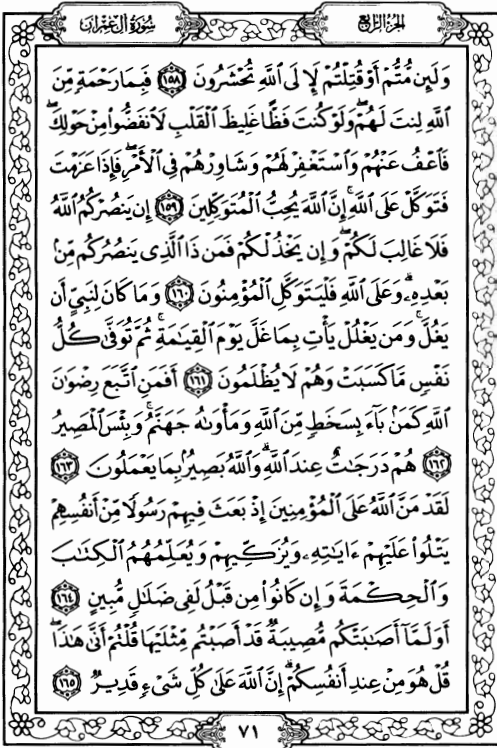 سُورَةُ آلِ عِمْرَانَ
الجُزْءُ الرَّابِعُ
وَلَئِن مُّتُّمْ أَوْ قُتِلْتُمْ لَإِلَى ٱللَّهِ تُحْشَرُونَ ١٥٨ فَبِمَا رَحْمَةٍ مِّنَ
ٱللَّهِ لِنتَ لَهُمْ ۖ وَلَوْ كُنتَ فَظًّا غَلِيظَ ٱلْقَلْبِ لَٱنفَضُّوا۟ مِنْ حَوْلِكَ ۖ
فَٱعْفُ عَنْهُمْ وَٱسْتَغْفِرْ لَهُمْ وَشَاوِرْهُمْ فِى ٱلْأَمْرِ ۖ فَإِذَا عَزَمْتَ
فَتَوَكَّلْ عَلَى ٱللَّهِ ۚ إِنَّ ٱللَّهَ يُحِبُّ ٱلْمُتَوَكِّلِينَ ١٥٩ إِن يَنصُرْكُمُ ٱللَّهُ
فَلَا غَالِبَ لَكُمْ ۖ وَإِن يَخْذُلْكُمْ فَمَن ذَا ٱلَّذِى يَنصُرُكُم مِّنۢ
بَعْدِهِۦ ۗ وَعَلَى ٱللَّهِ فَلْيَتَوَكَّلِ ٱلْمُؤْمِنُونَ ١٦٠ وَمَا كَانَ لِنَبِىٍّ أَن
يَغُلَّ ۚ وَمَن يَغْلُلْ يَأْتِ بِمَا غَلَّ يَوْمَ ٱلْقِيَـٰمَةِ ۚ ثُمَّ تُوَفَّىٰ كُلُّ
نَفْسٍ مَّا كَسَبَتْ وَهُمْ لَا يُظْلَمُونَ ١٦١ أَفَمَنِ ٱتَّبَعَ رِضْوَٰنَ
ٱللَّهِ كَمَنۢ بَآءَ بِسَخَطٍ مِّنَ ٱللَّهِ وَمَأْوَىٰهُ جَهَنَّمُ ۚ وَبِئْسَ ٱلْمَصِيرُ
١٦٢ هُمْ دَرَجَـٰتٌ عِندَ ٱللَّهِ ۗ وَٱللَّهُ بَصِيرٌۢ بِمَا يَعْمَلُونَ ١٦٣
لَقَدْ مَنَّ ٱللَّهُ عَلَى ٱلْمُؤْمِنِينَ إِذْ بَعَثَ فِيهِمْ رَسُولًا مِّنْ أَنفُسِهِمْ
يَتْلُوا۟ عَلَيْهِمْ ءَايَـٰتِهِۦ وَيُزَكِّيهِمْ وَيُعَلِّمُهُمُ ٱلْكِتَـٰبَ
وَٱلْحِكْمَةَ وَإِن كَانُوا۟ مِن قَبْلُ لَفِى ضَلَـٰلٍ مُّبِينٍ ١٦٤
أَوَلَمَّآ أَصَـٰبَتْكُم مُّصِيبَةٌ قَدْ أَصَبْتُم مِّثْلَيْهَا قُلْتُمْ أَنَّىٰ هَـٰذَا ۖ
قُلْ هُوَ مِنْ عِندِ أَنفُسِكُمْ ۗ إِنَّ ٱللَّهَ عَلَىٰ كُلِّ شَىْءٍ قَدِيرٌ ١٦٥
٧١